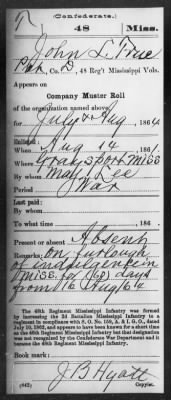 (Confederate.)
T 48 Miss.
John L. True
Pvt, Co. D, 48 Reg't Mississippi Vols.
Appears on
Company Muster Roll
of the organization named above,
for July & Aug, 1864.
Enlisted:
When Aug 14, 1861.
Where Graysport Miss
By whom
Period War
Last paid:
By whom
To what time , 186 .
Present or absent Absent
Remarks: On furlough
of indulgence in
Miss. for (60) days
from 16 Aug/64
The 48th Regiment Mississippi Infantry was formed by
increasing the 2d Battalion Mississippi Infantry to a
regiment in compliance with S. O. No. 159, A. & I. G. O., dated
July 10, 1862, and appears to have been known for a short time
as the 47th Regiment Mississippi Infantry but that designation
was not recognized by the Confederate War Department and it
became the 48th Regiment Mississippi Infantry.
Book mark:
(642) J B Hyatt
Copyist.